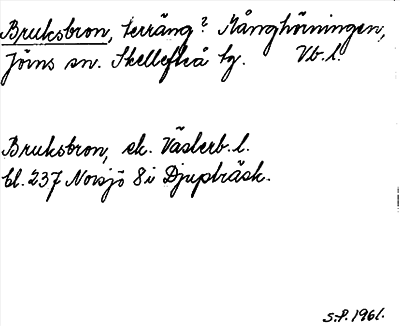 Bruksbron, terräng? Månghörningen,
Jörns sn. Skellefteå tg. Vb.l.
Bruksbron, ek. Västerb.l.
bl. 237 Norsjö 8i Djupträsk.
S.P. 1961.